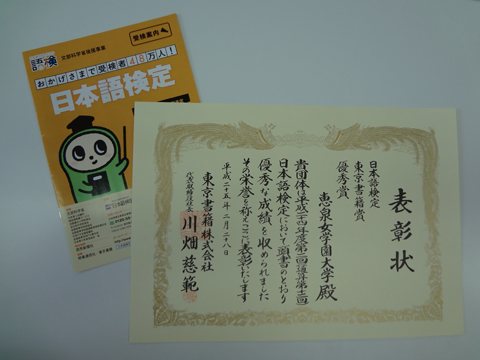 語検
文部科学省後援事業
受検案内
おかげさまで受検者48万人!
日本語検定
表彰状
日本語検定
東京書籍賞
優秀賞
恵泉女学園大学殿
貴団体は平成二十四年度第二回(通算第十二回)
日本語検定において頭書のとおり
優秀な成績を収められました
その栄誉を称えここに表彰いたします
平成二十五年二月二十八日
東京書籍株式会社
代表取締役社長 川畑慈範